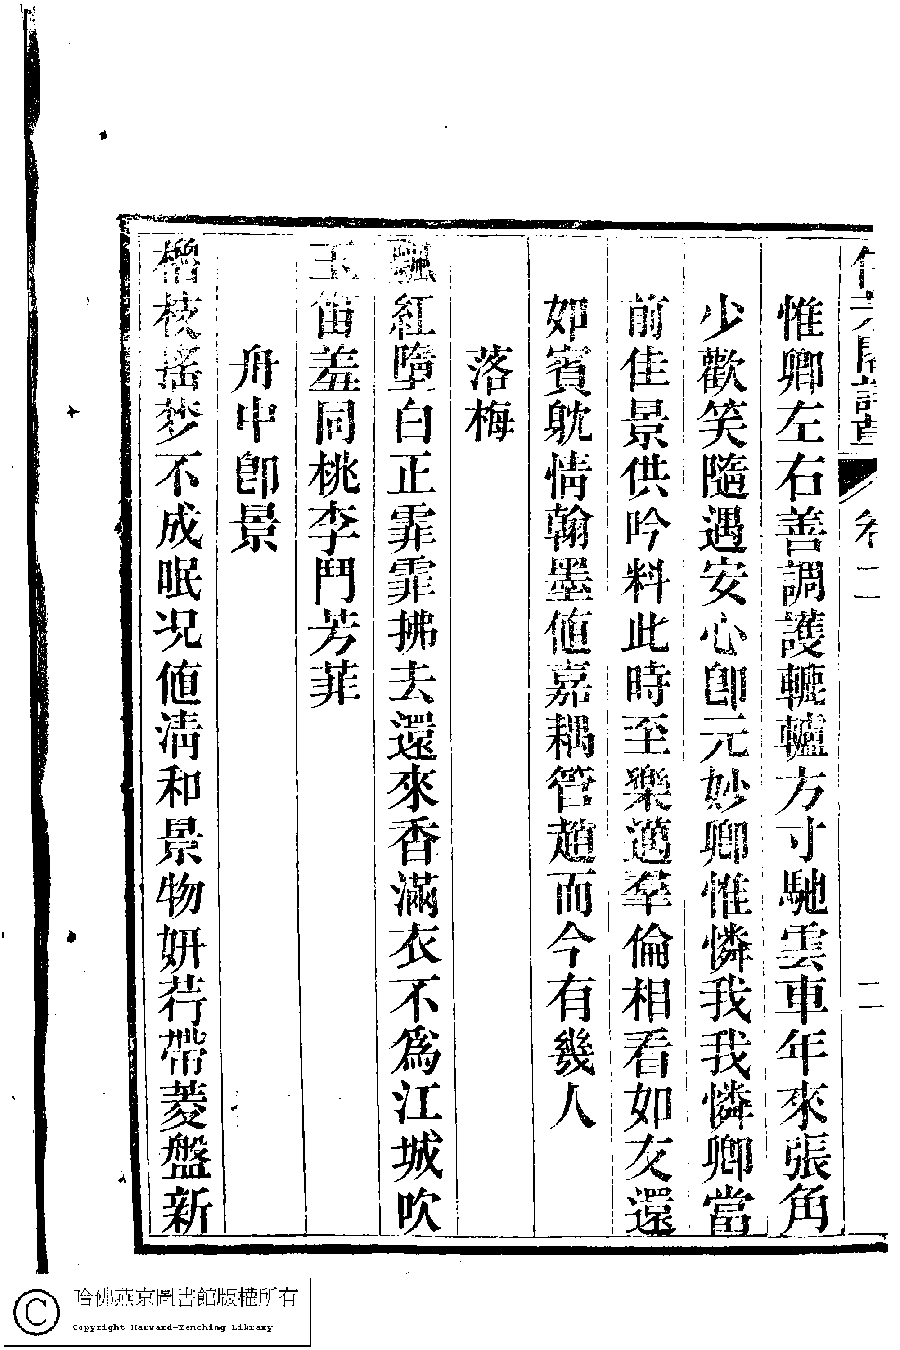 卷一
二
惟卿左右善調護轆轤方寸馳雲車年來張角
少歡笑隨遇安心卽元妙卿惟憐我我憐卿當
前佳景供吟料此時至樂邁羣倫相看如友還
如賓耽情翰墨値嘉耦管趙而今有幾人
落梅
飄紅墮白正霏霏拂去還來香滿衣不爲江城吹
玉笛羞同桃李鬥芳菲
舟中卽景
櫓枝搖夢不成眠况値淸和景物妍荇帶菱盤新
哈佛燕京圖書館版權所有
Copyright Harvard-Yenching Library